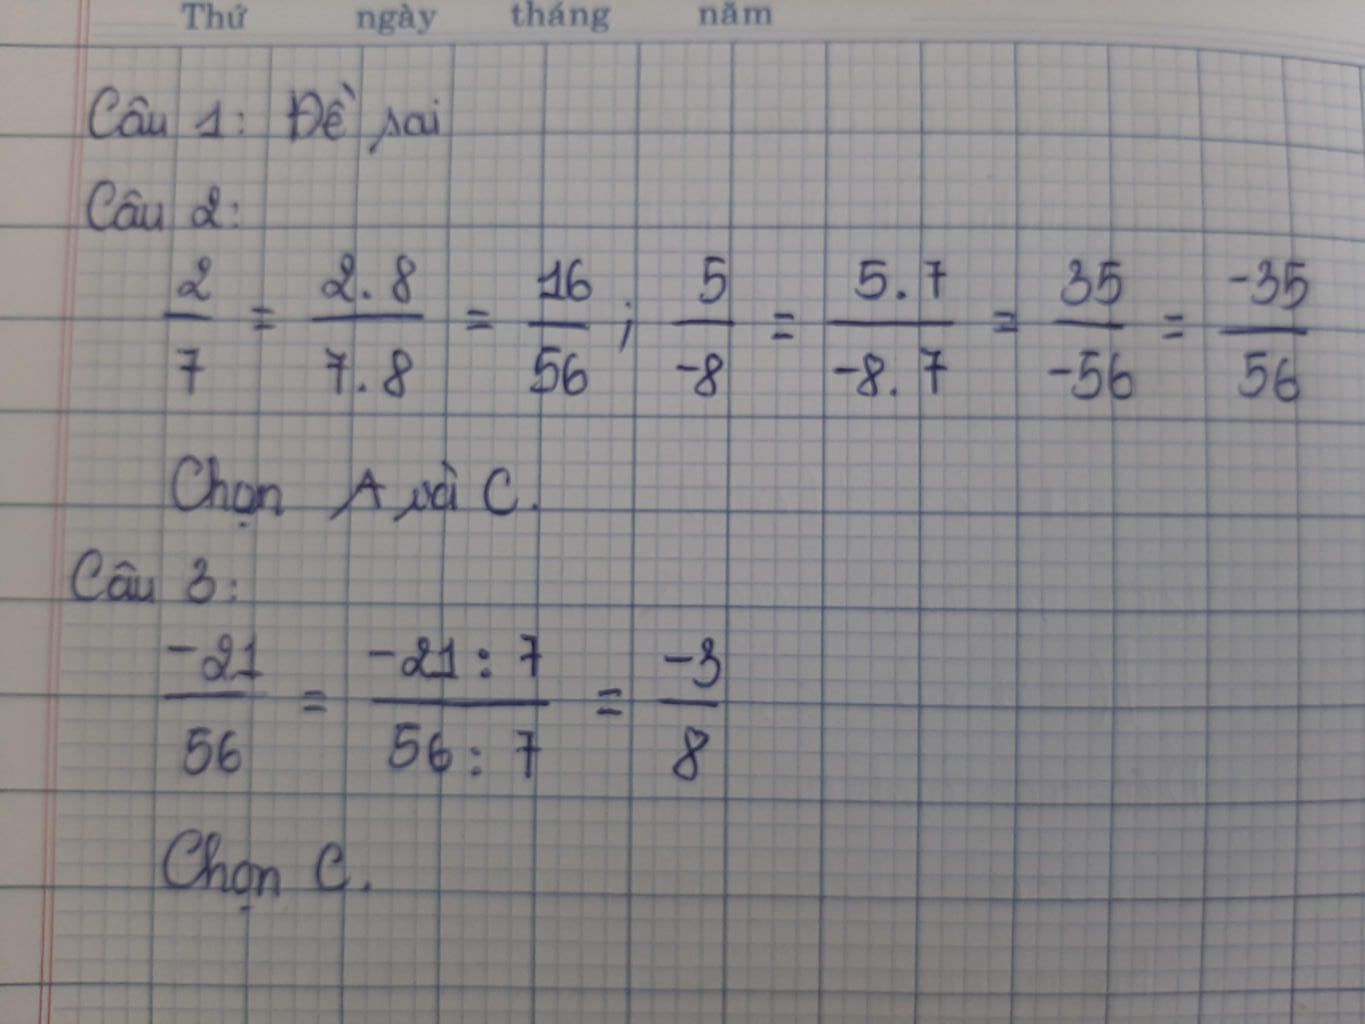 Thứ ngày tháng năm
Câu 1: Đề sai
Câu 2:
2/7 = 2.8/7.8 = 16/56 ; 5/-8 = 5.7/-8.7 = 35/-56 = -35/56
Chọn A và C.
Câu 3:
-21/56 = -21:7/56:7 = -3/8
Chọn C.